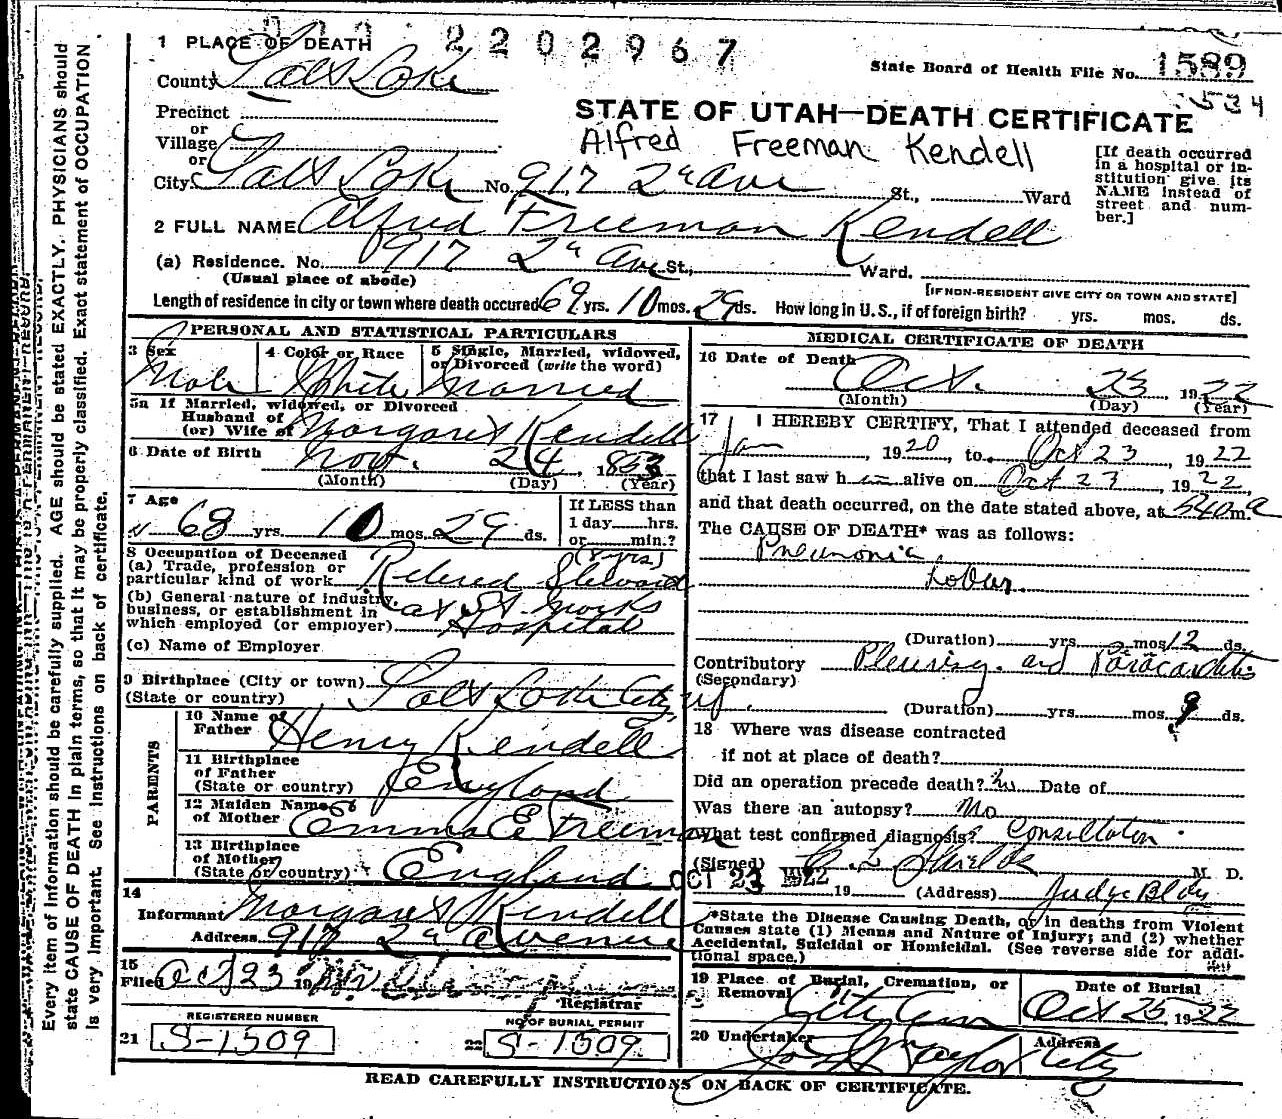 2202967
1 PLACE OF DEATH
State Board of Health File No. 1589
County Salt Lake
534
STATE OF UTAH—DEATH CERTIFICATE
Precinct
or
Village
or
Alfred Freeman Kendell
City Salt Lake No. 917 2d Ave St., Ward
[If death occurred in a hospital or in-
stitution give its
NAME instead of
street and num-
ber.]
2 FULL NAME Alfred Freeman Kendell
(a) Residence. No. 917 2d Ave St., Ward.
(Usual place of abode)
[IF NON-RESIDENT GIVE CITY OR TOWN AND STATE]
Length of residence in city or town where death occured 69 yrs. 10 mos. 29 ds. How long in U. S., if of foreign birth? yrs. mos. ds.
PERSONAL AND STATISTICAL PARTICULARS
3 Sex
Male
4 Color or Race
White
5 Single, Married, widowed,
or Divorced (write the word)
Married
5a If Married, widowed, or Divorced
Husband of
(or) Wife of Margaret Kendell
6 Date of Birth Nov. 24, 1853
(Month) (Day) (Year)
7 Age
68 yrs. 10 mos. 29 ds.
If LESS than
1 day hrs.
or min.?
8 Occupation of Deceased
(a) Trade, profession or
particular kind of work Retired Steward (8 yrs)
(b) General nature of industry,
business, or establishment in
which employed (or employer) at St Marks Hospital
(c) Name of Employer
9 Birthplace (City or town)
(State or country) Salt Lake City Ut.
PARENTS
10 Name of
Father Henry Kendell
11 Birthplace
of Father
(State or country) England
12 Maiden Name
of Mother Emma E Freeman
13 Birthplace
of Mother
(State or country) England
14
Informant Margaret Kendell
Address 917 2d Avenue
15
Filed Oct 23 19
Registrar
REGISTERED NUMBER
21 S-1509
NO. OF BURIAL PERMIT
22 S-1509
MEDICAL CERTIFICATE OF DEATH
16 Date of Death
Oct. 23, 1922
(Month) (Day) (Year)
17 I HEREBY CERTIFY, That I attended deceased from
Jan, 1920, to Oct 23, 1922
that I last saw him alive on Oct 23, 1922,
and that death occurred, on the date stated above, at 540 m. a
The CAUSE OF DEATH* was as follows:
Pneumonia
Lobar
(Duration) yrs. mos. 12 ds.
Contributory Pleurisy and Paracarditis
(Secondary)
(Duration) yrs. mos. 9 ds.
18 Where was disease contracted
if not at place of death?
Did an operation precede death? no Date of
Was there an autopsy? No
What test confirmed diagnosis? Consultation
(Signed) L Shields M. D.
OCT 23 1922 19 (Address) Judge Bldg
*State the Disease Causing Death, or in deaths from Violent
Causes state (1) Means and Nature of Injury; and (2) whether
Accidental, Suicidal or Homicidal. (See reverse side for addi-
tional space.)
19 Place of Burial, Cremation, or
Removal City Cem
Date of Burial
Oct 25, 1922
20 Undertaker
Jos Wm Taylor
Address
City
READ CAREFULLY INSTRUCTIONS ON BACK OF CERTIFICATE.
Every item of information should be carefully supplied. AGE should be stated EXACTLY. PHYSICIANS should
state CAUSE OF DEATH in plain terms, so that it may be properly classified. Exact statement of OCCUPATION
is very important. See instructions on back of certificate.